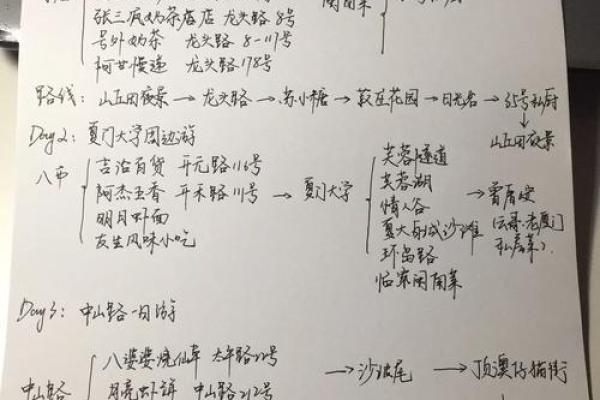 张三疯奶茶店店 龙头路 8号
闽南菜
号外奶茶 龙头路 8-117号
阿甘慢递 龙头路178号
路线: 山丘田夜景 → 龙头路 → 苏小糖 → 菽庄花园 → 日光岩 → 35号私厨
山丘田夜景
Day2: 厦门大学周边游
八市
吉治百货 开元路116号
阿杰五香 开禾路111号
明月虾面
友生风味小吃
→ 厦门大学
芙蓉隧道
芙蓉湖
情人谷
厦大白城沙滩
环岛路
临家闽南菜
→ 曾厝垵
(云哥·老厦门
私房菜)
Day3: 中山路一日游
中山路
八婆婆烧仙草 大中路22号
月亮虾饼 中山路212号
→ 沙坡尾 → 顶澳仔猫街